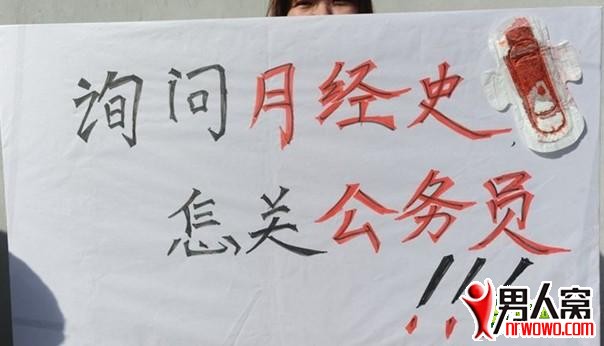 询问月经史,
怎关公务员
!!!
男人窝
nrwowo.com